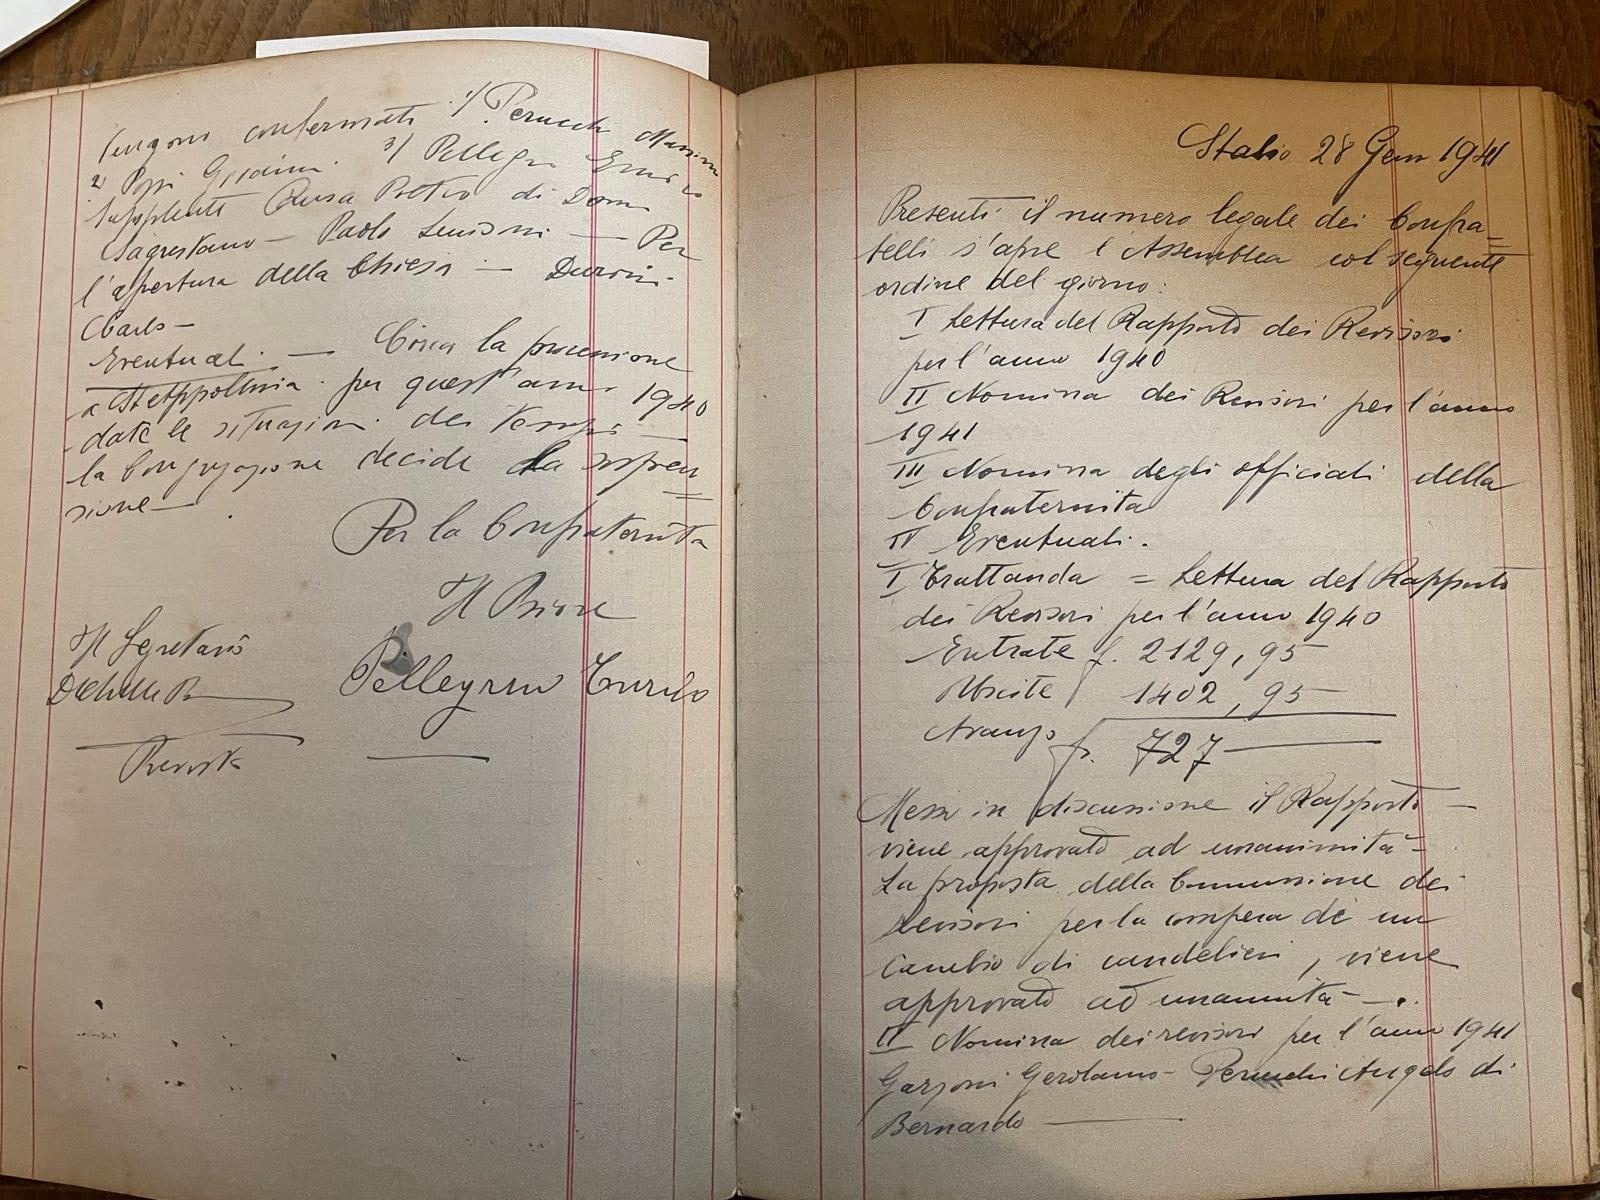 Vengono confermati 1/ Perucchi Massimo
2) Poppi Giovanni 3/ Pellegrini Enrico
supplenti Chiesa Pietro di Dom
Sagrestano — Paolo — Per
l'apertura della Chiesa — Durini
Carlo —
Eventuali. — Circa la processione
a per quest'anno 1940
date le situazioni dei tempi —
la Congregazione decide la sospen=
sione —
Per la Confraternita
Il Priore
Il Segretario
Pellegrini Curzio
Stabio 28 Gen 1941
Presenti il numero legale dei Confra=
telli s'apre l'Assemblea col seguente
ordine del giorno:
I Lettura del Rapporto dei Revisori
per l'anno 1940
II Nomina dei Revisori per l'anno
1941
III Nomina degli officiali della
Confraternita
IV Eventuali.
I Trattanda = Lettura del Rapporto
dei Revisori per l'anno 1940
Entrate f. 2129,95
Uscite f 1402,95
Avanzo fr. 727 —
Messo in discussione il Rapporto —
viene approvato ad unanimità —
La proposta della Commissione dei
revisori per la compera di un
cambio di candelieri, viene
approvato ad unanimità — .
II Nomina dei revisori per l'anno 1941
Garzoni Gerolamo - Perucchi Angelo di
Bernardo —